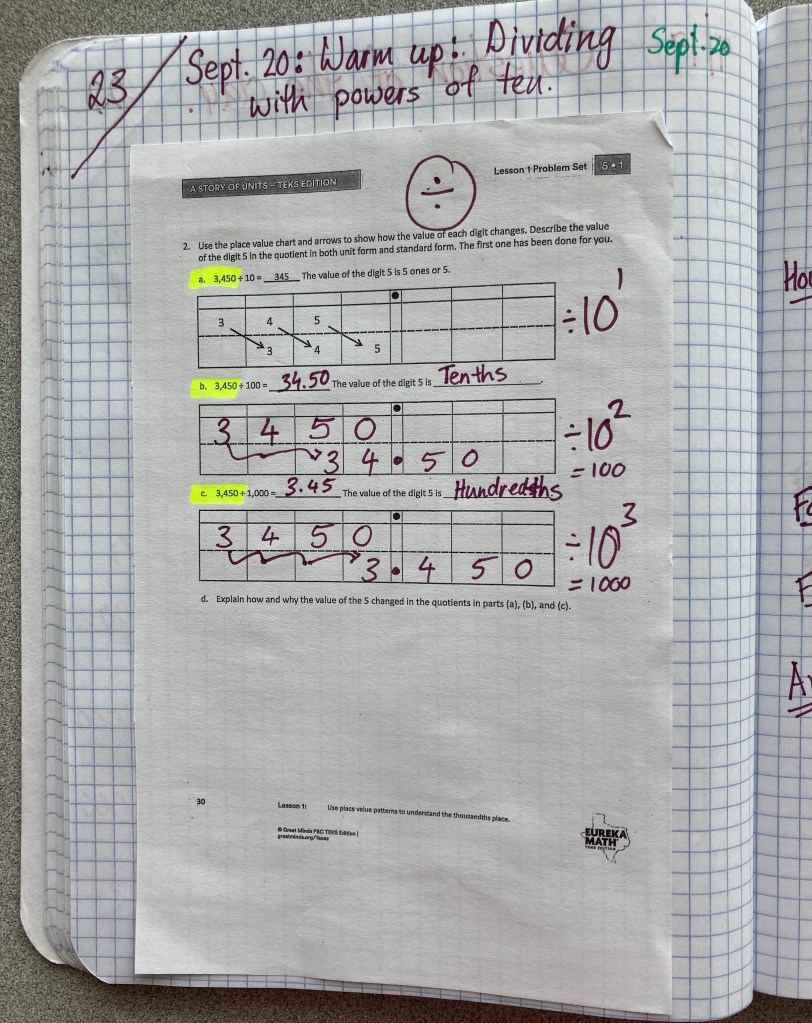 23 Sept. 20: Warm up: Dividing Sept. 20
with powers of ten.
A STORY OF UNITS – TEKS EDITION
Lesson 1 Problem Set 5•1
÷
2. Use the place value chart and arrows to show how the value of each digit changes. Describe the value
of the digit 5 in the quotient in both unit form and standard form. The first one has been done for you.
a. 3,450 ÷ 10 = 345 The value of the digit 5 is 5 ones or 5.
3 4 5
3 4 5
÷10¹
b. 3,450 ÷ 100 = 34.50 The value of the digit 5 is Tenths
3 4 5 0
3 4 . 5 0
÷10²
= 100
c. 3,450 ÷ 1,000 = 3.45 The value of the digit 5 is Hundredths
3 4 5 0
3 . 4 5 0
÷10³
= 1000
d. Explain how and why the value of the 5 changed in the quotients in parts (a), (b), and (c).
30
Lesson 1: Use place value patterns to understand the thousandths place.
© Great Minds PBC TEKS Edition |
greatminds.org/Texas
EUREKA
MATH
TEKS EDITION